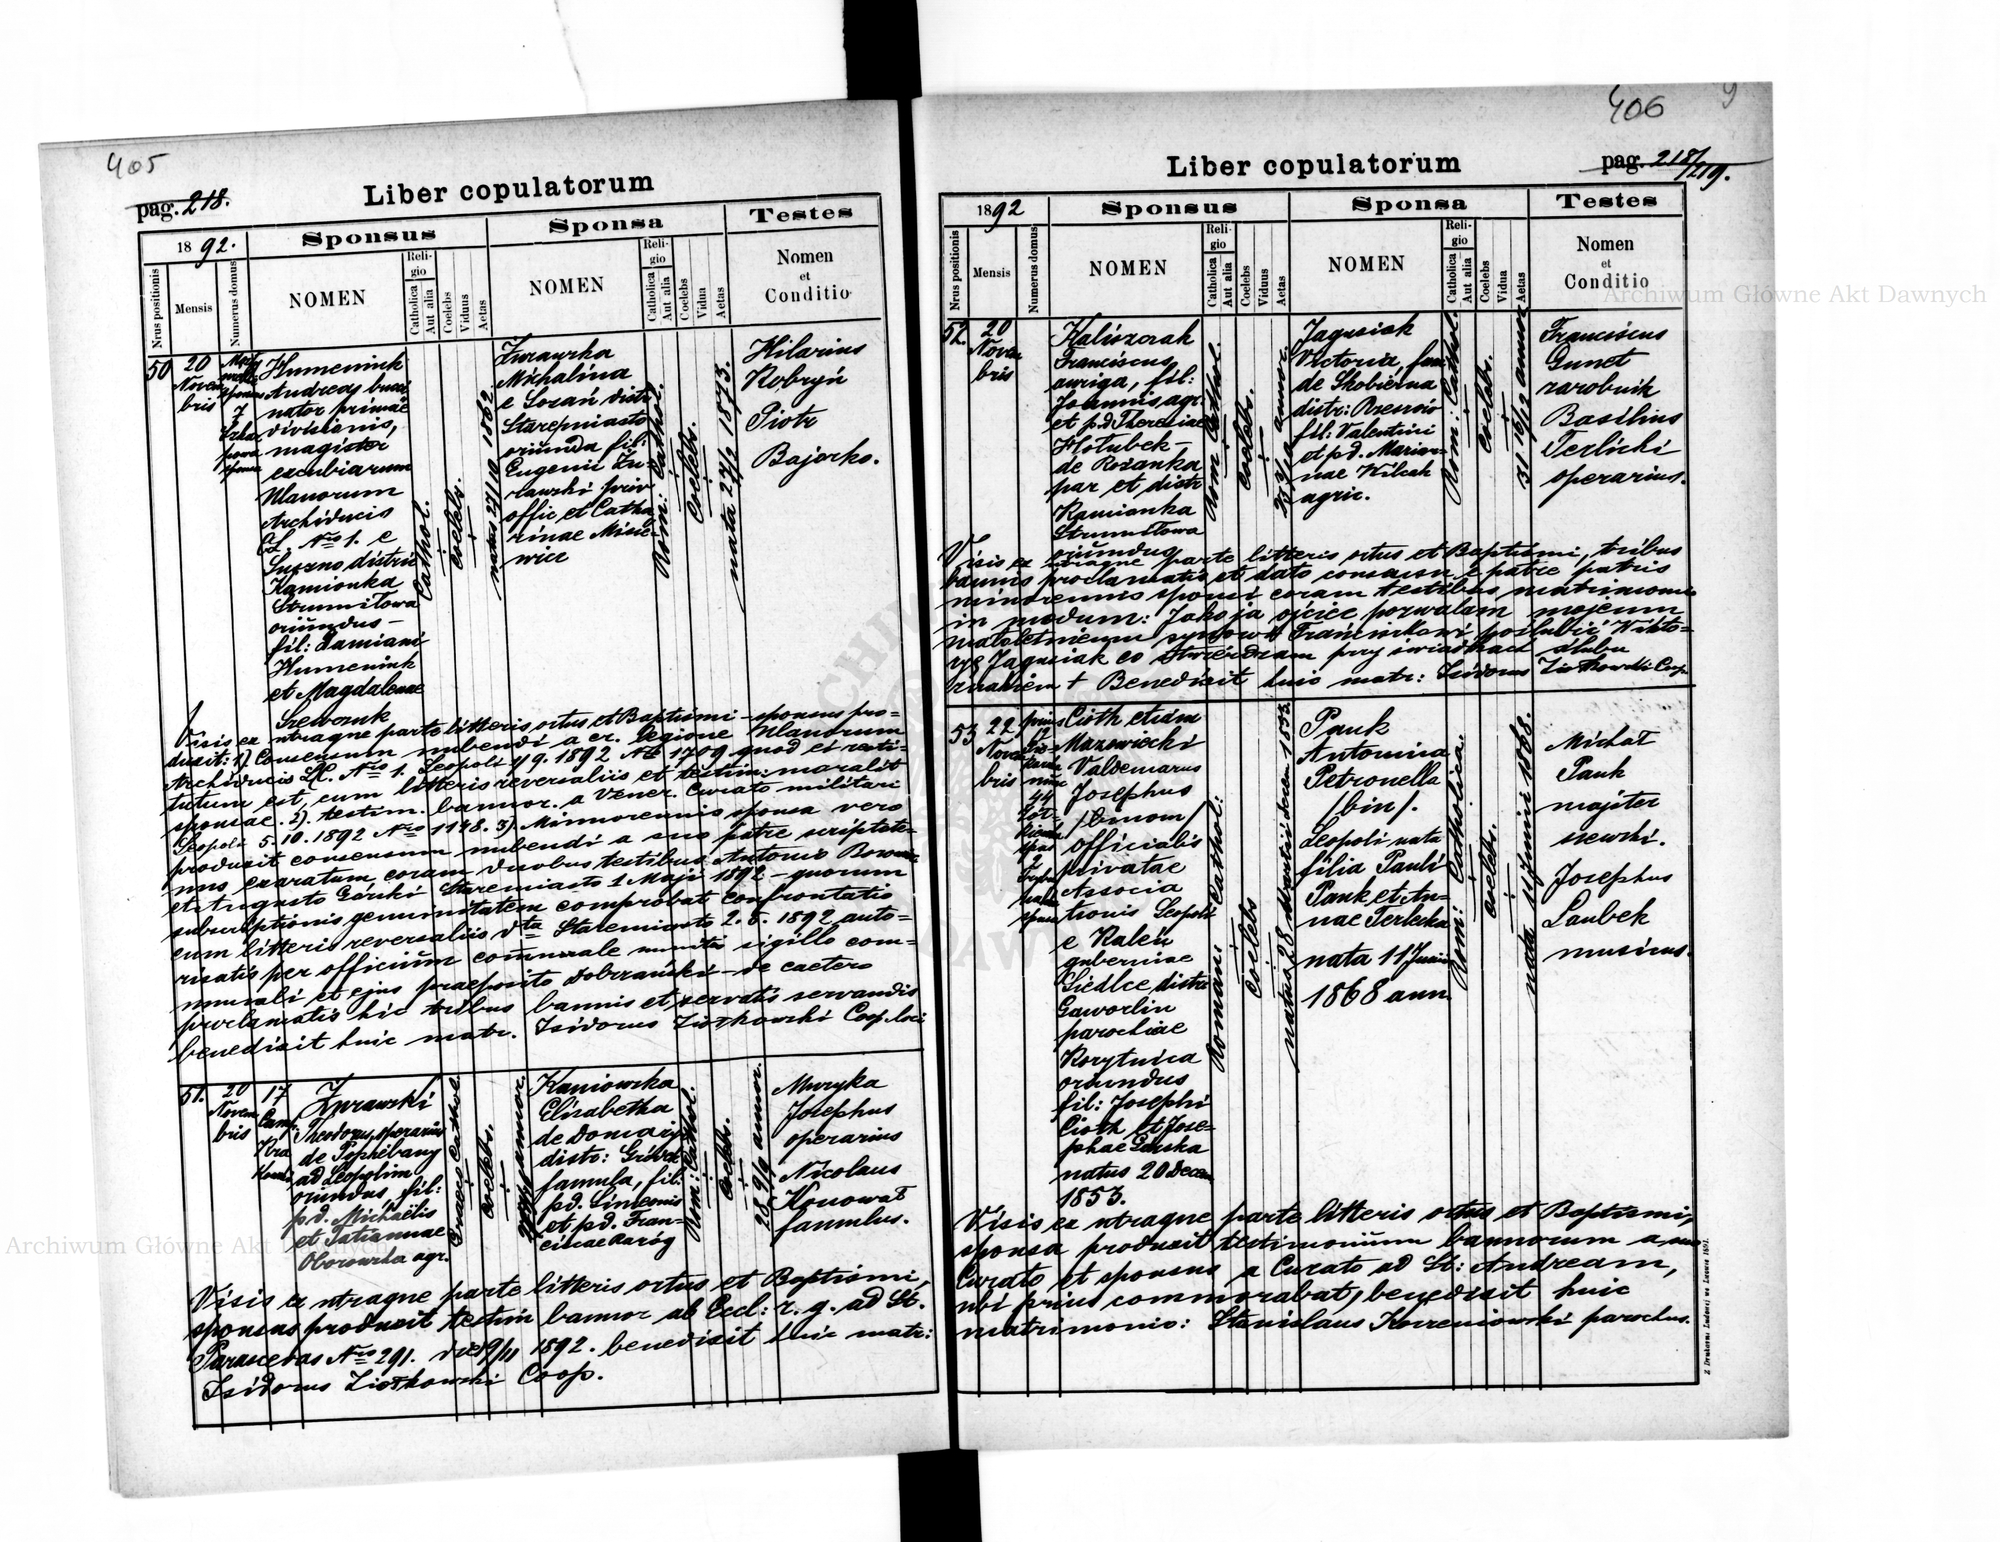 405
pag. 218.
Liber copulatorum
1892.
Sponsus
Sponsa
Testes
Nrus positionis
Mensis
Numerus domus
NOMEN
Reli-
gio
Catholica
Aut alia
Coelebs
Viduus
Aetas
NOMEN
Reli-
gio
Catholica
Aut alia
Coelebs
Vidua
Aetas
Nomen
et
Conditio
50
20
Novem
bris
7
sponsa
Humeniuk
Andreas bucci
nator primae
divisionis,
magister
excubiarum
Ulanorum
Archiducis
N-ro 1. e
Suszno distric
Kamionka
Strumiłowa
oriundus –
fil: Damiani
Humeniuk
et Magdalenae
Szewczuk
Cathol.
Coelebs.
natus 27/10 1862
Żurawska
Michalina
e Sozań distr
Staremiasto
oriunda fil:
Eugenii Żu-
rawski priv
offic et Catha
rinae Misie-
wicz
Rom: Cathol.
Coelebs.
nata 27/2 1873.
Hilarius
Kobryń
Piotr
Bajorko.
Visis ex utraque parte litteris ortus et Baptismi – sponsus pro-
duxit: 1) Consensum nubendi a cr. Legione Ulanorum
Archiducis N-ro 1. Leopoli 4/9. 1892 No 1709 quod et resti-
tutum est, cum litteris reversaliis et testim: moralit
sponsae. 2). testim. bannor. a Vener. Curato militari
Leopoli 5.10.1892 N-ro 1148. 3) Minorennis sponsa vero
produxit consensum nubendi a suo patre scripto te-
nus exaratum coram duobus testibus Antonio
et Augusto Górski Staremiasto 1 Maji 1892 – quorum
subscriptionis genuinitatem comprobat confrontatio
cum litteris reversaliis dta Staremiasto 2.5.1892 auto-
risatis per officium comunale munitis sigillo com-
munali et ejus praeposito Dobrzański – de caetero
proclamatis hic tribus bannis et servatis servandis
benedixit huic matr. Isidorus Ziółkowski Coop. loci
51.
20
Novem
bris
17
Żurawski
Theodorus, operarius
de
ad Leopolim
oriundus, fil:
pd. Michaelis
et Tatiannae
Oborowska agr.
Graeco Cathol.
Coelebs.
annor.
Kaniowska
Elisabetha
de
distr: Gródek
famula, fil:
pd. Simeonis
et pd. Fran-
ciscae Raróg
Rom: Cathol.
Coelebs.
28 9/9 annor.
Muzyka
Josephus
operarius
Nicolaus
Konował
famulus.
Visis ex utraque parte litteris ortus et Baptismi,
sponsus produxit testim bannor ab Eccl: r. g. ad St.
Parascevas N-ro 291. 19/11 1892. benedixit huic matr:
Isidorus Ziółkowski Coop.
406
9
Liber copulatorum
pag. 218/219.
1892
Sponsus
Sponsa
Testes
Nrus positionis
Mensis
Numerus domus
NOMEN
Reli-
gio
Catholica
Aut alia
Coelebs
Viduus
Aetas
NOMEN
Reli-
gio
Catholica
Aut alia
Coelebs
Vidua
Aetas
Nomen
et
Conditio
52.
20
Novem
bris
Kaliszczak
Franciscus
auriga, fil:
Joannis, agr
et pd. Theresiae
Hołubek –
de Rożanka
par et distr
Kamionka
Strumiłowa
oriundus
Rom Cathol.
Coelebs.
annor.
Jagusiak
Victoria, fam
de Skobierna
distr: Rzeszów
fil: Valentini
et pd. Marian-
nae Wilczak
agric.
Rom: Cathol.
Coelebs.
annor
Franciscus
Gunet
zarobnik
Basilius
Terlicki
operarius.
Visis ex utraque parte litteris ortus et Baptismi, tribus
bannis proclamatis et dato consensu e patre patris
minorennis sponsi coram testibus matrimonii
in modum: Jako ja ojciec pozwalam mojemu
małoletniemu synowi Franciszkowi poślubić Wikto-
ryę Jagusiak co stwierdzam przy świadkach ślubu
znakiem + Benedixit huic matr: Isidorus Ziółkowski Coop.
53
22
Novem
bris
44
2
Cioth etiam
Mazowiecki
Valdemarus
Josephus
/binom/
officialis
privatae
Associa
tionis Leopoli
e Kaleń
guberniae
Siedlce distr
Garwolin
parochiae
Korytnica
oriundus
fil: Josephi
Cioth et Jose-
phae Garska
natus 20 Decem
1853.
Romani Cathol:
Coelebs
natus 28 Decem 1853.
Pauk
Antonina
Petronella
/bin/.
Leopoli nata
filia Pauli
Pauk et An-
nae Terlecka
nata 11 Junii
1868 ann.
Rom: Catholica.
Coelebs.
nata 11 Junii 1868.
Michał
Pauk
majster
szewski.
Josephus
Laubek
musicus.
Visis ex utraque parte litteris ortus et Baptismi,
sponsa produxit testimonium bannorum a suo
Curato et sponsus a Curato ad St: Andream,
ubi prius commorabat, benedixit huic
matrimonio: Stanislaus Korzeniowski parochus.
Z Drukarni Ludowej we Lwowie 1891.
Archiwum Główne Akt Dawnych
Archiwum Główne Akt Dawnych